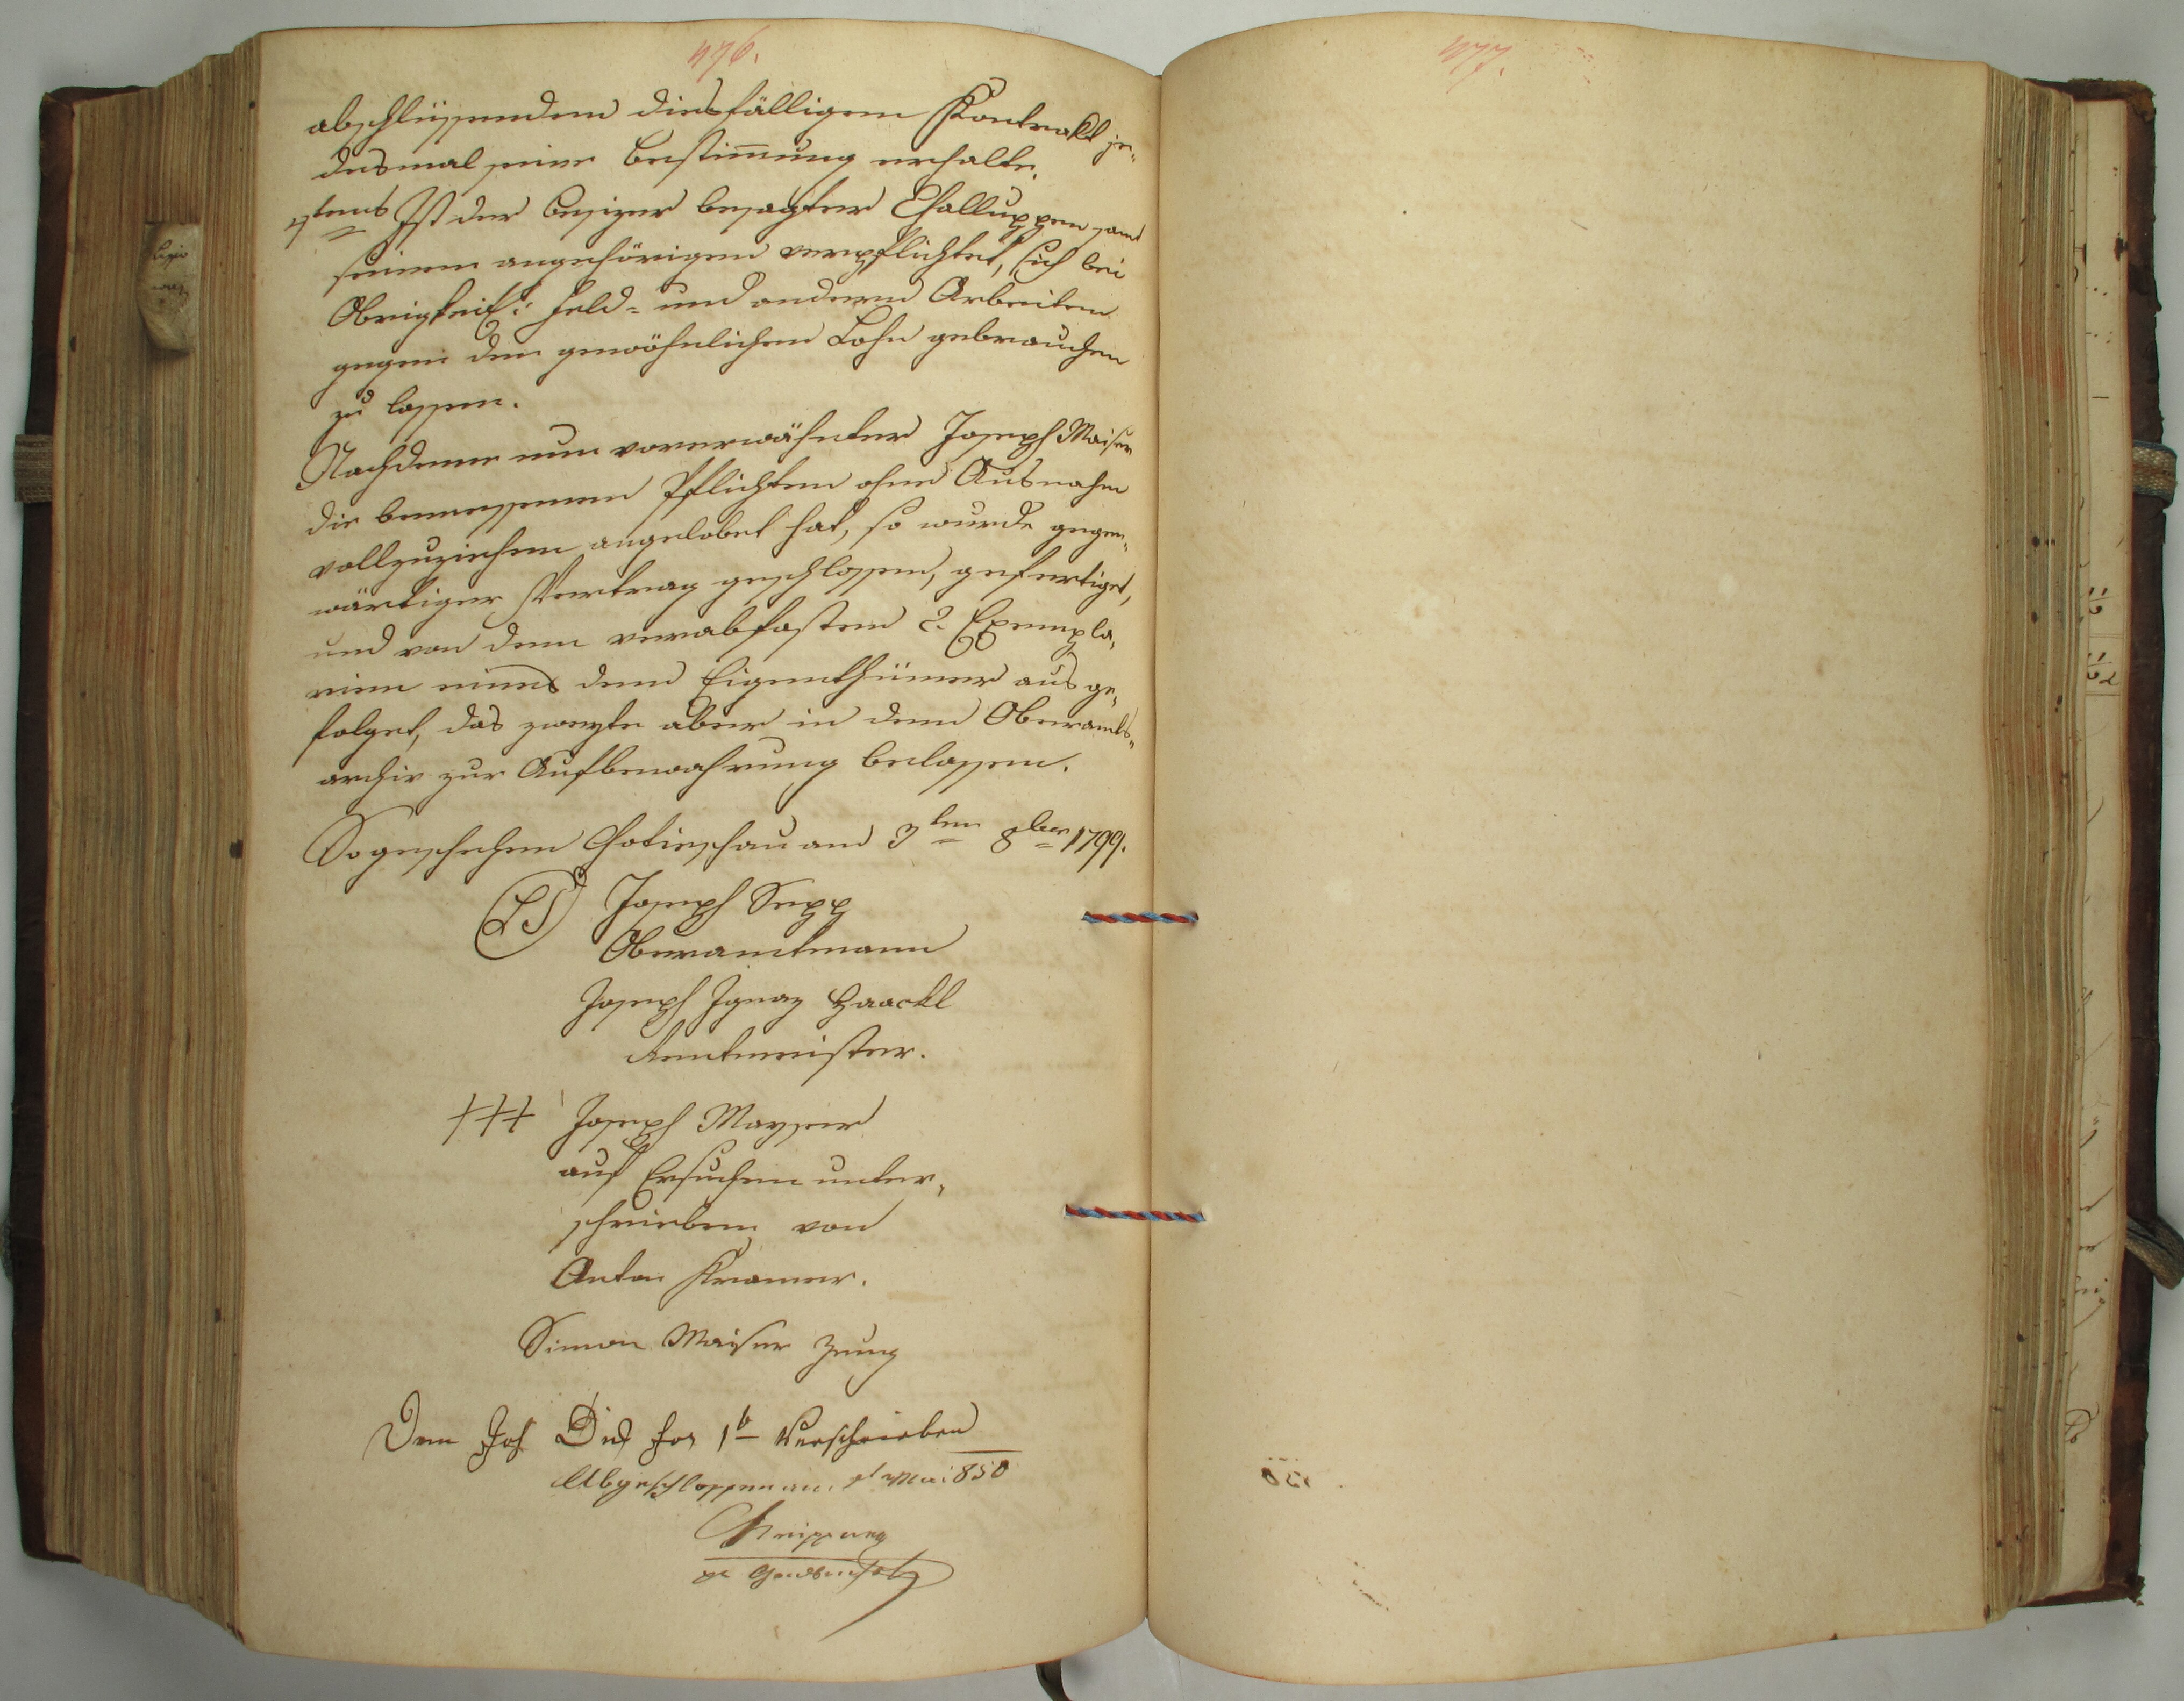 476.
abschlüssenden diesfälligen Kontrakt je-
desmal seine Bestimmung erhalte.
4tens Ist der Besizer besagter Challuppen samt
seinen angehörigen verpflichtet, sich bei
Obrigkeitl: Feld- und andern Arbeiten
gegen den gewöhnlichen Lohn gebrauchen
zu lassen.
Nachdeme nun vorerwähnter Joseph Maiser
die bemessenen Pflichten ohne Ausnahm
vollzuziehen angelobet hat, so wurde gegen-
wärtiger Vertrag geschlossen, gefertiget,
und von denen verabfasten 2. Exempla-
rien eines dem Eigenthümer aus ge-
folget, das zweyte aber in dem Oberamts-
archiv zur Aufbewahrung belassen.
So geschehen Chotieschau am 3ten 8ber 1799.
(LS) Joseph Sepp
Oberamtmann
Joseph Ignaz Haackl
Rentmeister.
+++ Joseph Mayser
auf Ersuchen unter-
schrieben von
Anton Kramer.
Simon Maiser Zeug
Dem Joh verschrieben
Abgeschlossen am Mai 850
477.